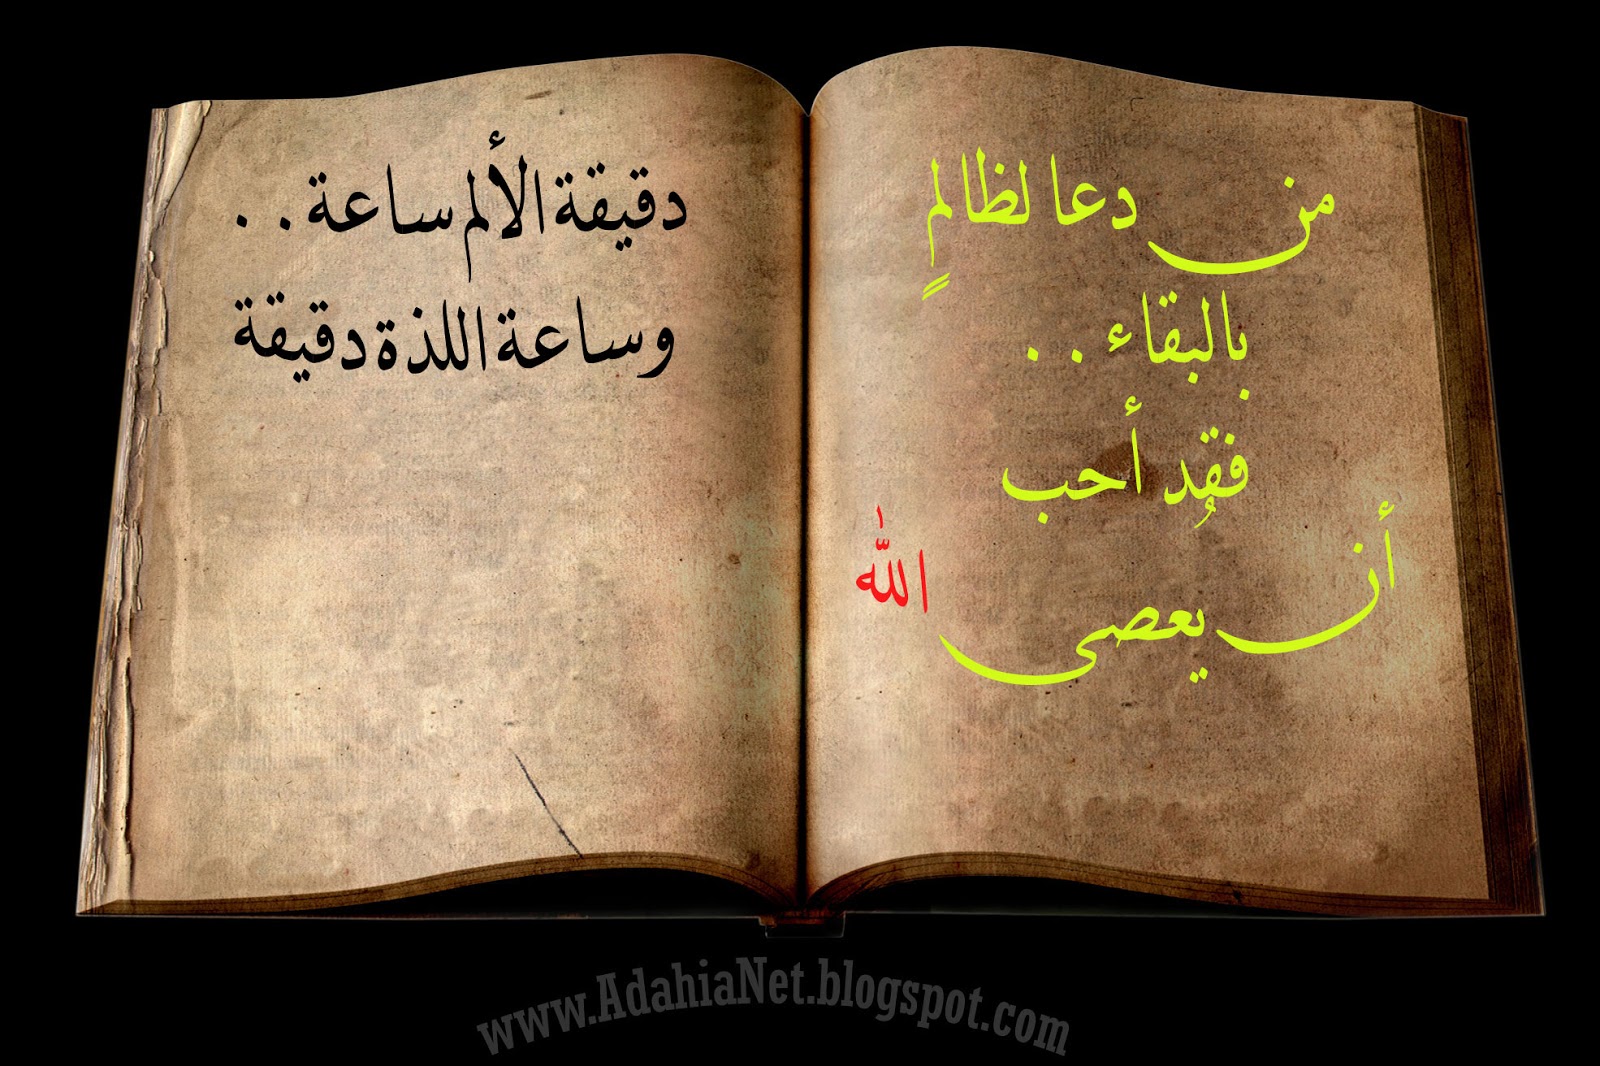 من دعا لظالمٍ
بالبقاء . .
فقد أحب
أن يُعصى اللّٰه
دقيقة الألم ساعة . .
وساعة اللذة دقيقة
www.AdahiaNet.blogspot.com